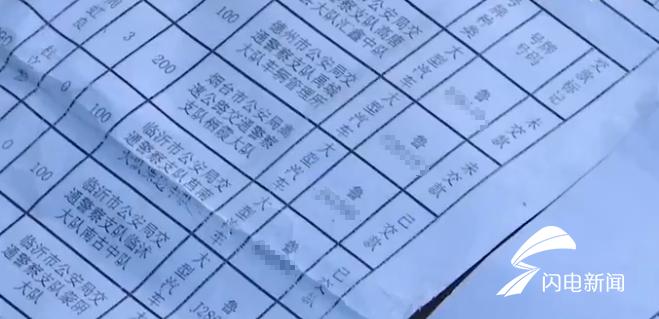 号牌种类
号牌号码
交款标记
100
通警察支队高唐
大队汇鑫中队
大型汽车
鲁
未交款
3
200
德州市公安局交
通警察支队夏城
大队车辆管理所
大型汽车
鲁
未交款
0
100
烟台市公安局高
速公路交通警察
支队栖霞大队
大型汽车
鲁
已交款
0
100
临沂市公安局交
通警察支队莒南
大型汽车
鲁
已交款
临沂市公安局交
通警察支队临沭
大队南古中队
大型汽车
鲁
临沂市公安局交
通警察支队蒙阴
大队
闪电新闻